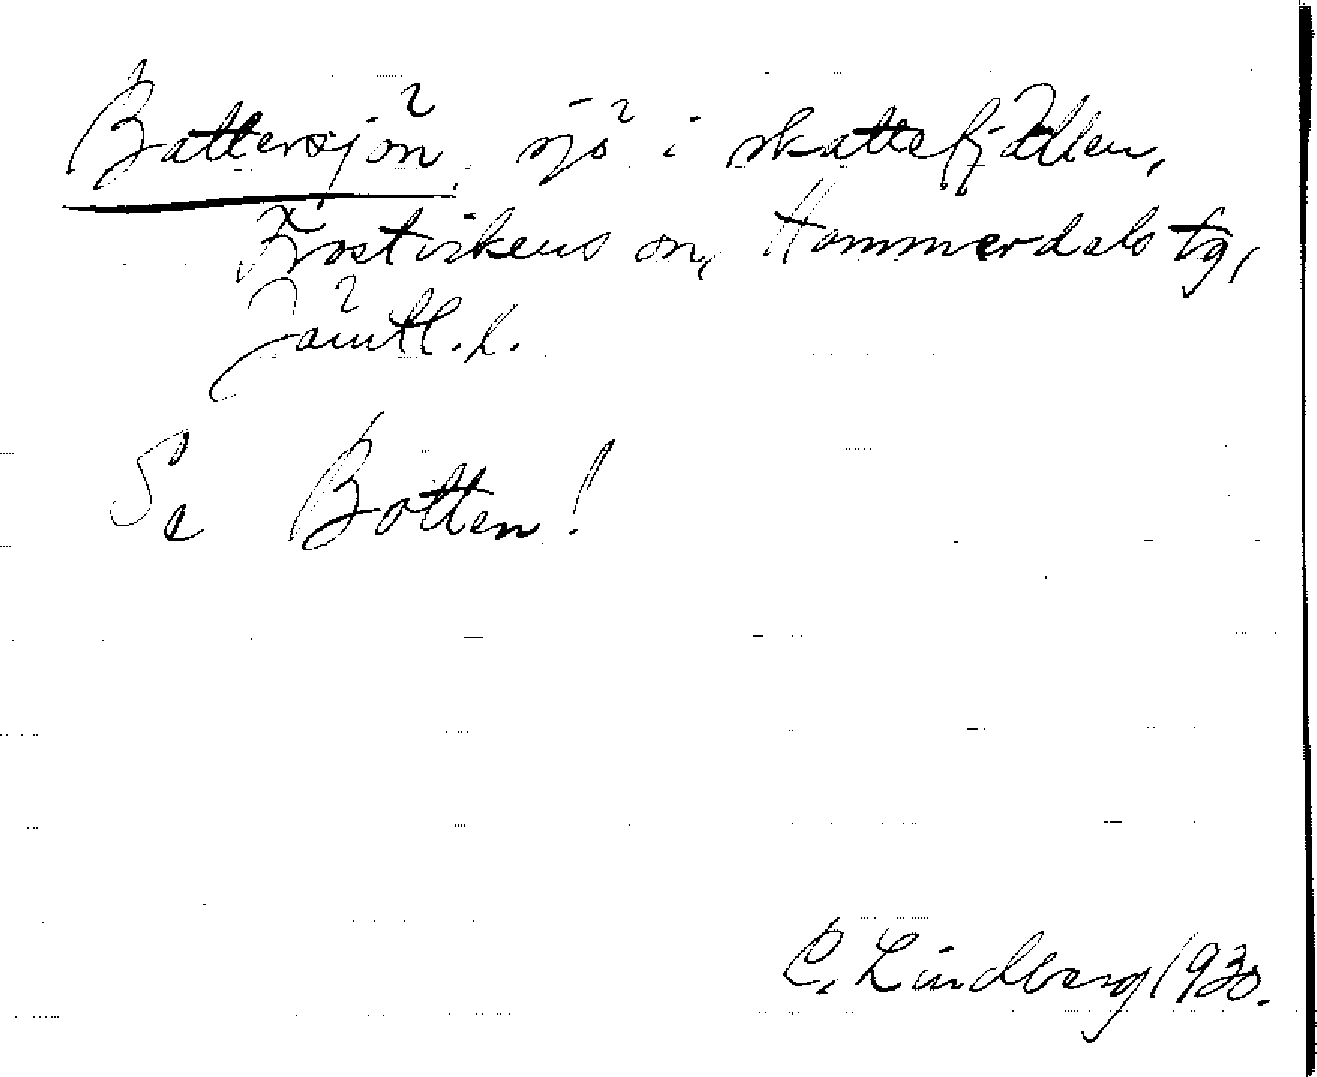 Battersjön, sjö i skattefjällen,
Frostvikens sn, Hammerdals tg,
Jämtl. l.
Se Botten!
C. Lindberg 1930.